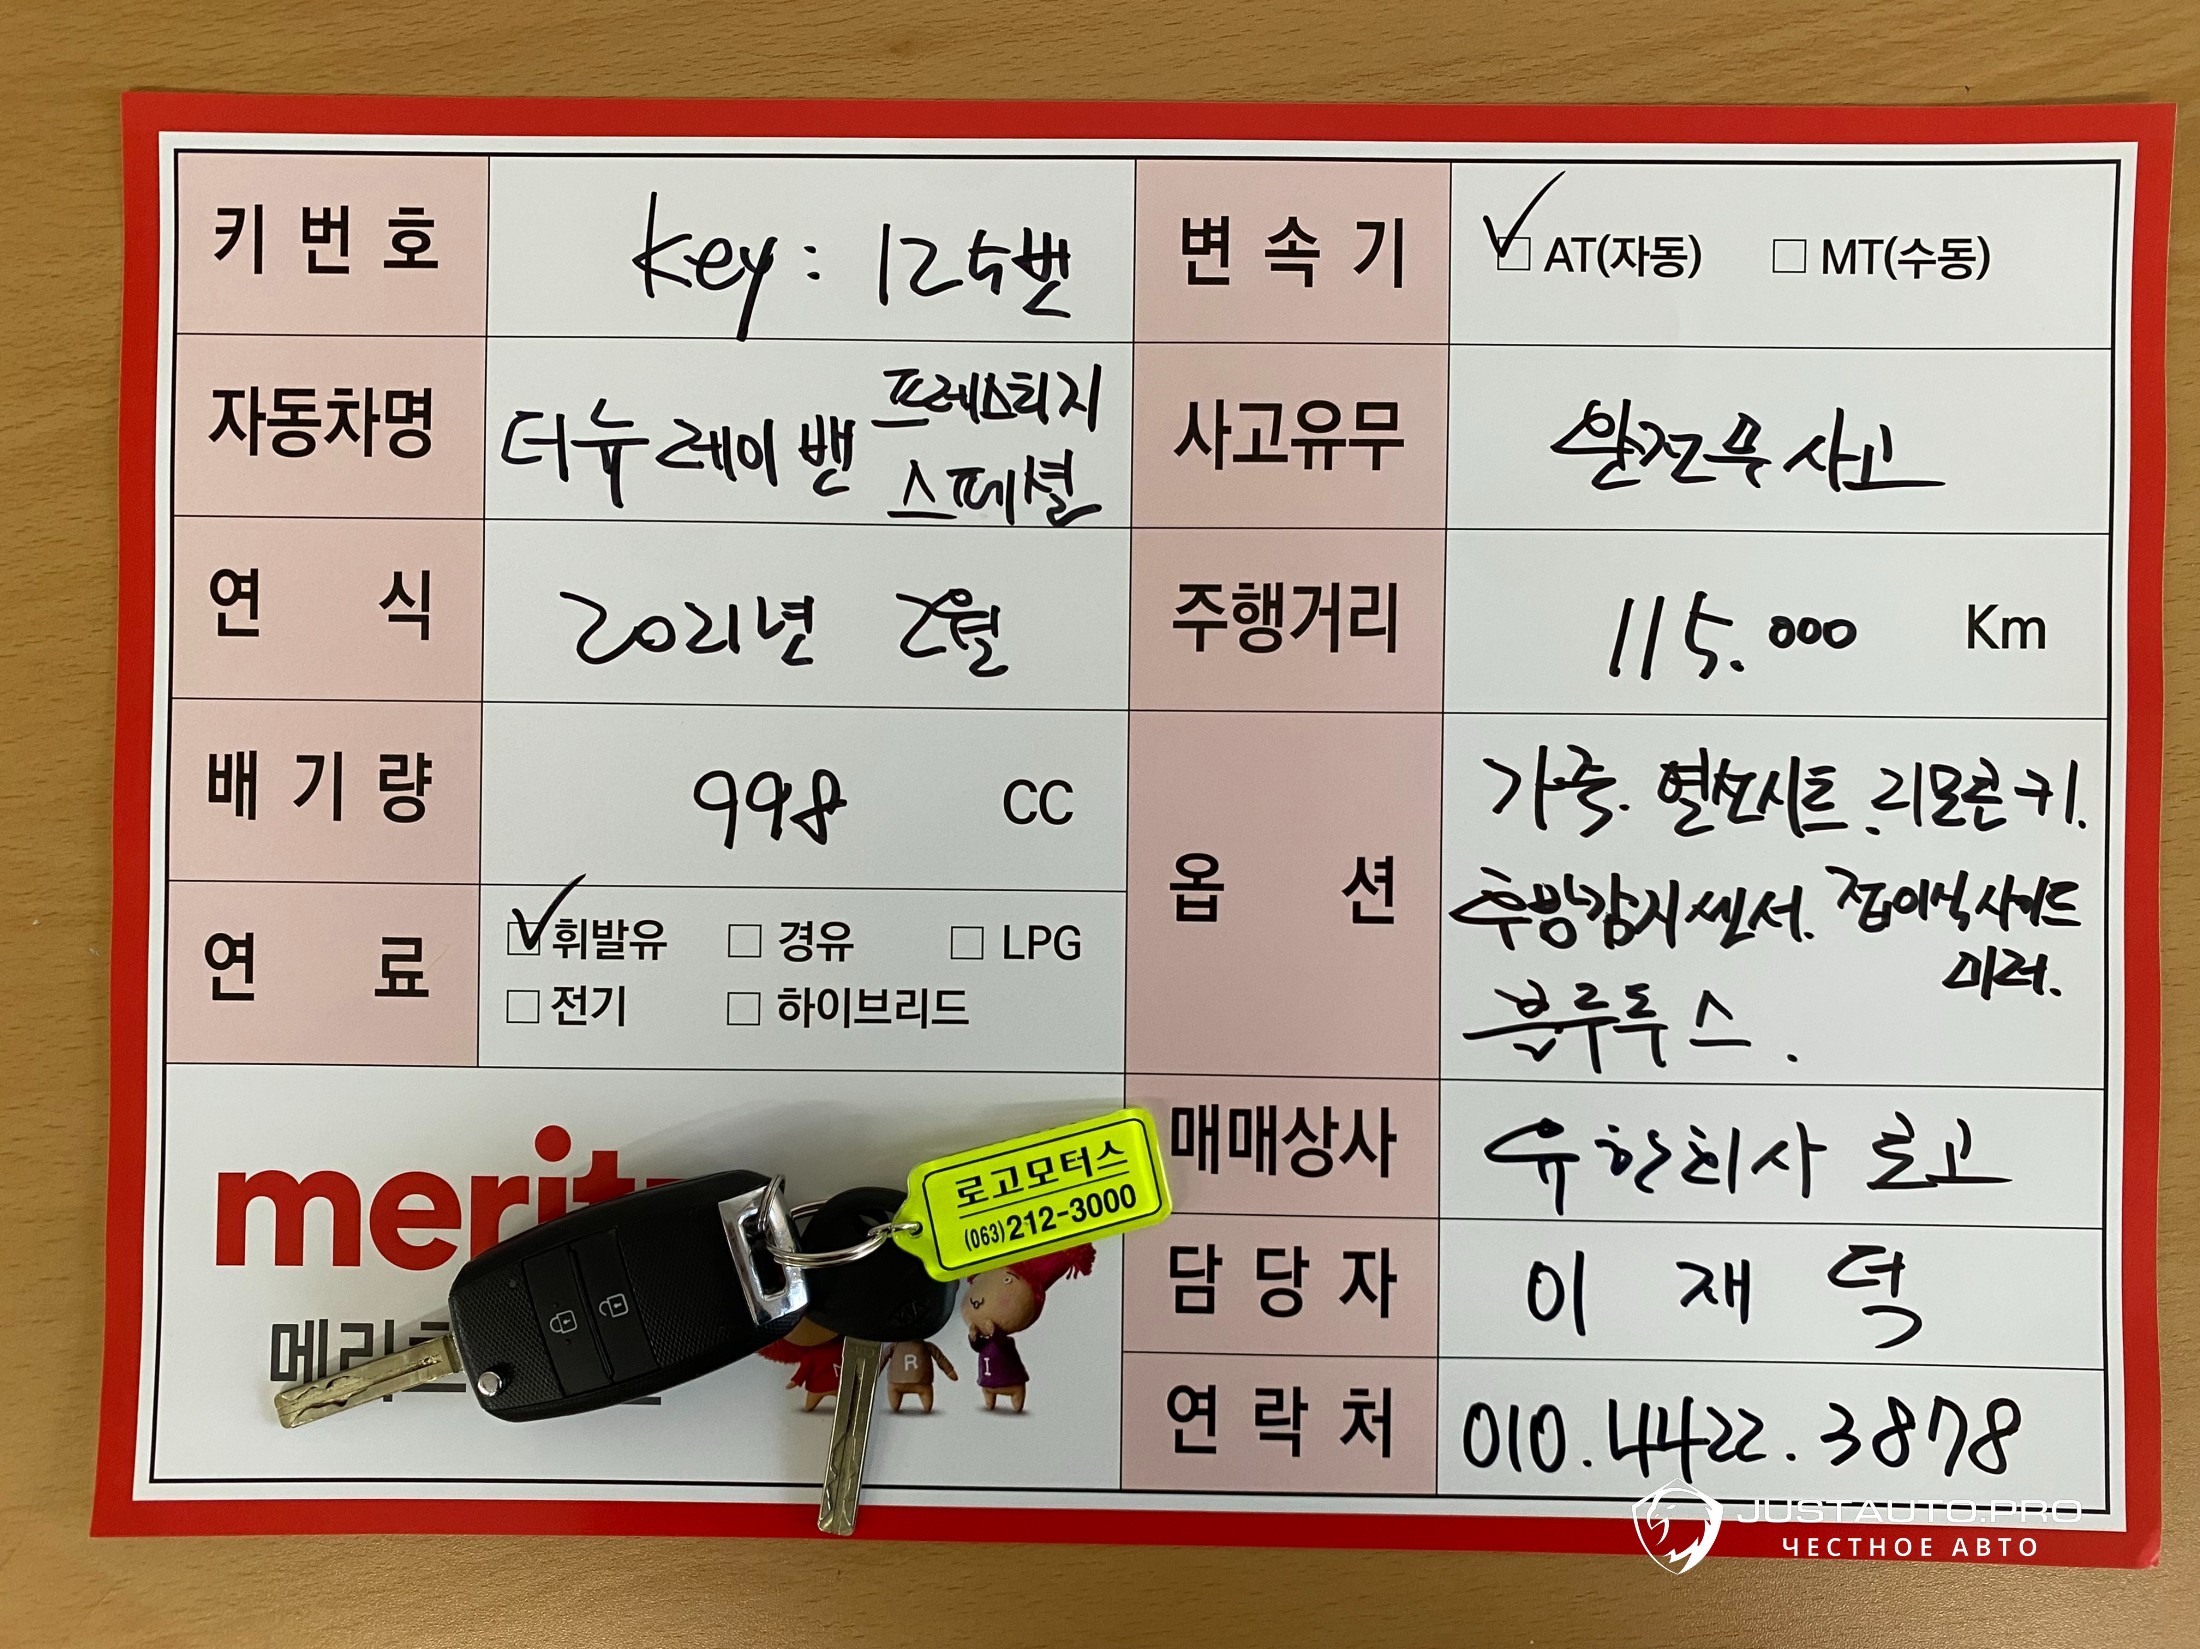 키 번 호
Key : 125번
변 속 기
AT(자동) MT(수동)
자동차명
더뉴 레이 밴 프레스티지
스페셜
사고유무
완전무사고
연 식
2021년 2월
주행거리
115.000 Km
배 기 량
998 CC
옵 션
가죽. 열선시트. 리모콘키.
후방감지센서. 접이식사이드
미러.
블루투스.
연 료
휘발유 경유 LPG
전기 하이브리드
매매상사
유한회사 로고
담 당 자
이 재 덕
연 락 처
010.4422.3878
로고모터스
(063)212-3000
R I
JUSTAUTO.PRO
ЧЕСТНОЕ АВТО